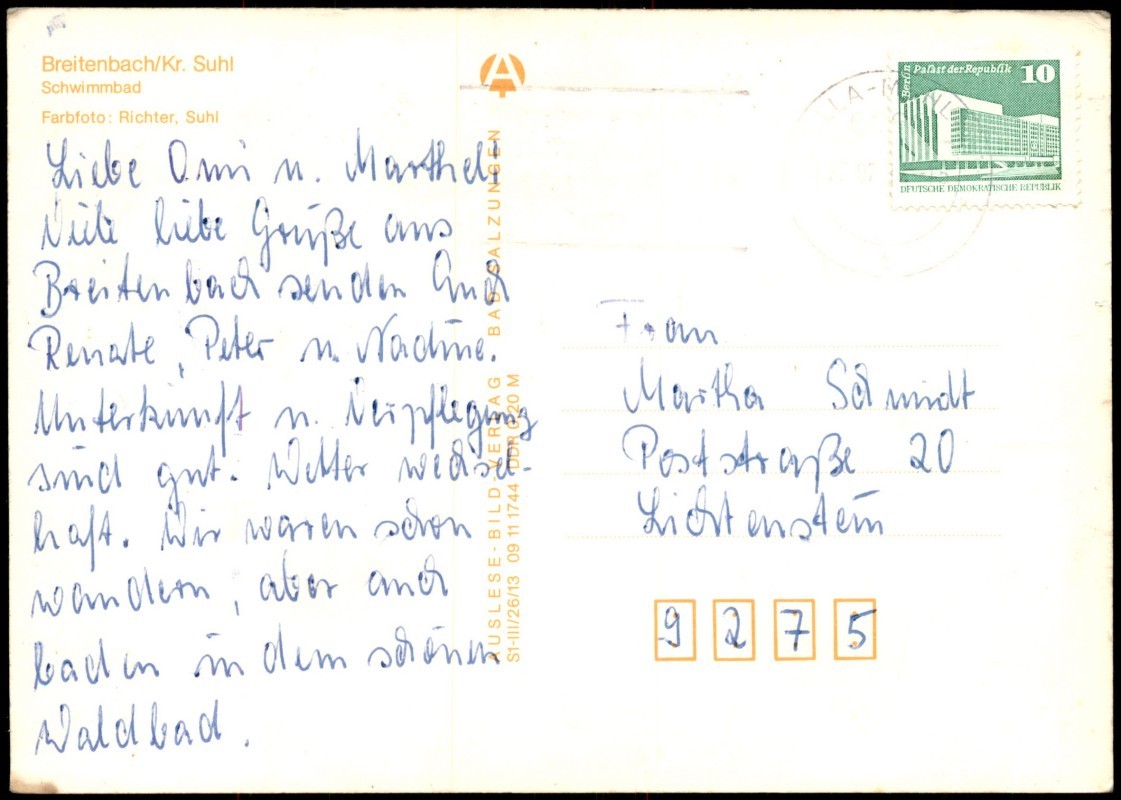 Breitenbach/Kr. Suhl
Schwimmbad
Farbfoto: Richter, Suhl
Liebe Omi u. Marthel!
Viele liebe Grüße aus
Breitenbach senden Euch
Renate, Peter u. Nadine.
Unterkunft u. Verpflegung
sind gut. Wetter wechsel-
haft. Wir waren schon
wandern, aber auch
baden in dem schönen
Waldbad.
AUSLESE-BILD-VERLAG BAD SALZUNGEN
S1-III/26/13 09 11 1744 DDR 0,20 M
Berlin
Palast der Republik 10
DEUTSCHE DEMOKRATISCHE REPUBLIK
Frau
Martha Schmidt
Poststraße 20
Lichtenstein
9275